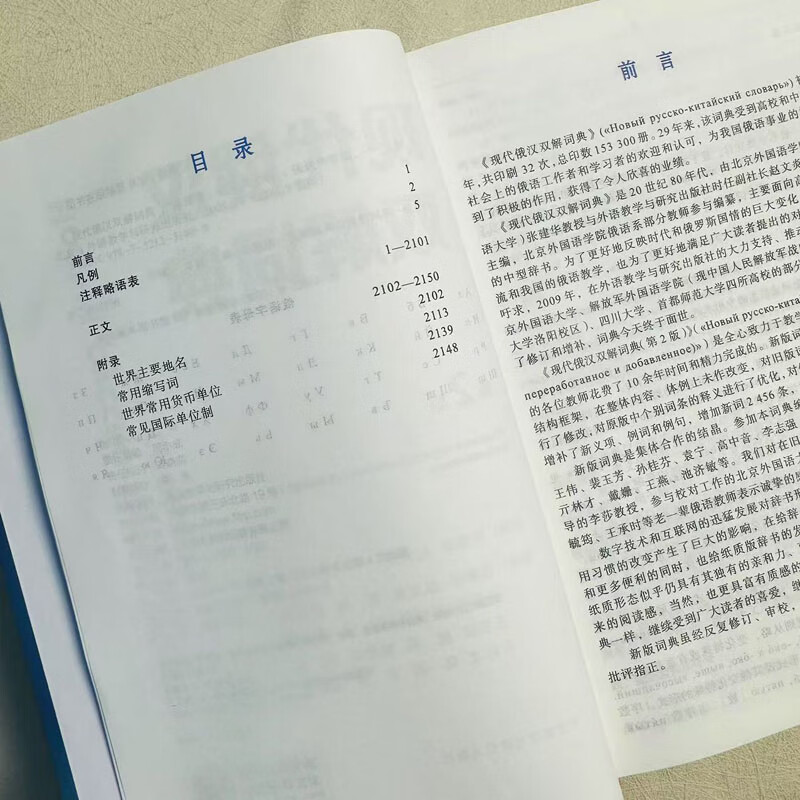 目 录
前言 1
凡例 2
注释略语表 5
正文 1—2101
附录 2102—2150
世界主要地名 2102
常用缩写词 2113
世界常用货币单位 2139
常见国际单位制 2148
前 言
《现代俄汉双解词典》(«Новый русско-китайский словарь»)
年,共印刷 32 次,总印数 153 300 册。29年来,该词典受到高校和中
社会上的俄语工作者和学习者的欢迎和认可,为我国俄语事业的
到了积极的作用,获得了令人欣喜的业绩。
《现代俄汉双解词典》是 20 世纪 80 年代,由北京外国语学
语大学)张建华教授与外语教学与研究出版社时任副社长赵文炎
主编,北京外国语学院俄语系部分教师参与编纂,主要面向高
的中型辞书。为了更好地反映时代和俄罗斯国情的巨大变化
流和我国的俄语教学,也为了更好地满足广大读者提出的对
吁求,2009 年,在外语教学与研究出版社的大力支持、推动
京外国语大学、解放军外国语学院(现中国人民解放军战
大学洛阳校区)、四川大学、首都师范大学四所高校的部分
了修订和增补,词典今天终于面世。
《现代俄汉双解词典(第 2 版)》(«Новый русско-кита
переработанное и добавленное)») 是全心致力于教学
的各位教师花费了 10 余年时间和精力完成的。新版词
结构框架,在整体内容、体例上未作改变,对旧版
行了修改,对原版中个别词条的释义进行了优化,对
增补了新义项、例词和例句,增加新词 2 456 条,
新版词典是集体合作的结晶。参加本词典编
王伟、裴玉芳、孙桂芬、袁宁、高中音、李志强
亓林才、戴姗、王燕、池济敏等。我们对在旧
导的李莎教授,参与校对工作的北京外国语大
毓筠、王承时等老一辈俄语教师表示诚挚的
数字技术和互联网的迅猛发展对辞书形
用习惯的改变产生了巨大的影响,在给辞
和更多便利的同时,也给纸质版辞书的发
纸质形态似乎仍具有其独有的亲和力、
来的阅读感,当然,也更具富有质感的
典一样,继续受到广大读者的喜爱,继
新版词典虽经反复修订、审校,
批评指正。